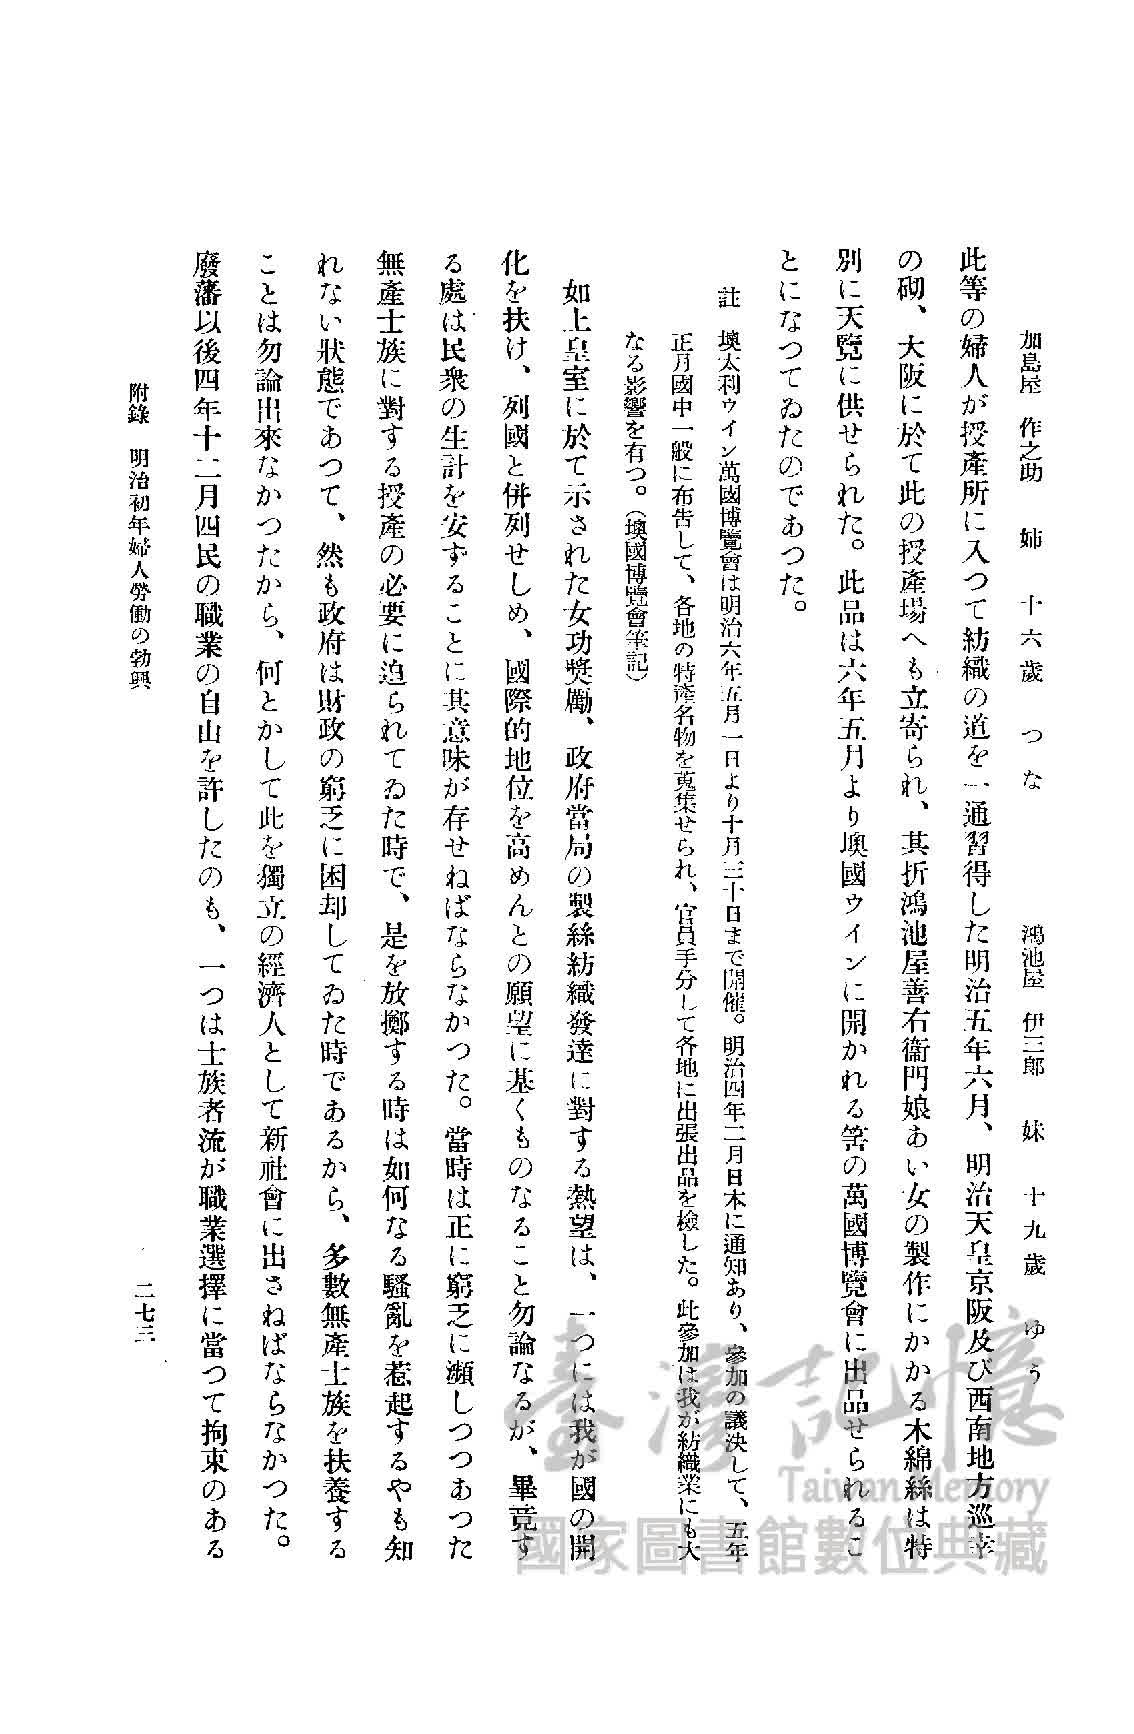 加島屋 作之助 姉 十六歲 つな 鴻池屋 伊三郞 妹 十九歲 ゆう
此等の婦人が授產所に入つて紡織の道を一通習得した明治五年六月、明治天皇京阪及び西南地方巡幸
の砌、大阪に於て此の授產場へも立寄られ、其折鴻池屋善右衞門娘あい女の製作にかかる木綿絲は特
別に天覽に供せられた。此品は六年五月より墺國ウインに開かれる筈の萬國博覽會に出品せられるこ
とになつてゐたのであつた。
註 墺太利ウイン萬國博覽會は明治六年五月一日より十月三十日まで開催。明治四年二月日本に通知あり、參加の議決して、五年
正月國中一般に布告して、各地の特產名物を蒐集せられ、官員手分して各地に出張出品を檢した。此參加は我が紡織業にも大
なる影響を有つ。（墺國博覽會筆記）
如上皇室に於て示された女功奬勵、政府當局の製絲紡織發達に對する熱望は、一つには我が國の開
化を扶け、列國と併列せしめ、國際的地位を高めんとの願望に基くものなること勿論なるが、畢竟す
る處は民衆の生計を安ずることに其意味が存せねばならなかつた。當時は正に窮乏に瀕しつつあつた
無產士族に對する授產の必要に迫られてゐた時で、是を放擲する時は如何なる騷亂を惹起するやも知
れない狀態であつて、然も政府は財政の窮乏に困却してゐた時であるから、多數無產士族を扶養する
ことは勿論出來なかつたから、何とかして此を獨立の經濟人として新社會に出さねばならなかつた。
廢藩以後四年十二月四民の職業の自由を許したのも、一つは士族者流が職業選擇に當つて拘束のある
附錄 明治初年婦人勞働の勃興
二七三
臺灣記憶
Taiwan Memory
國家圖書館數位典藏